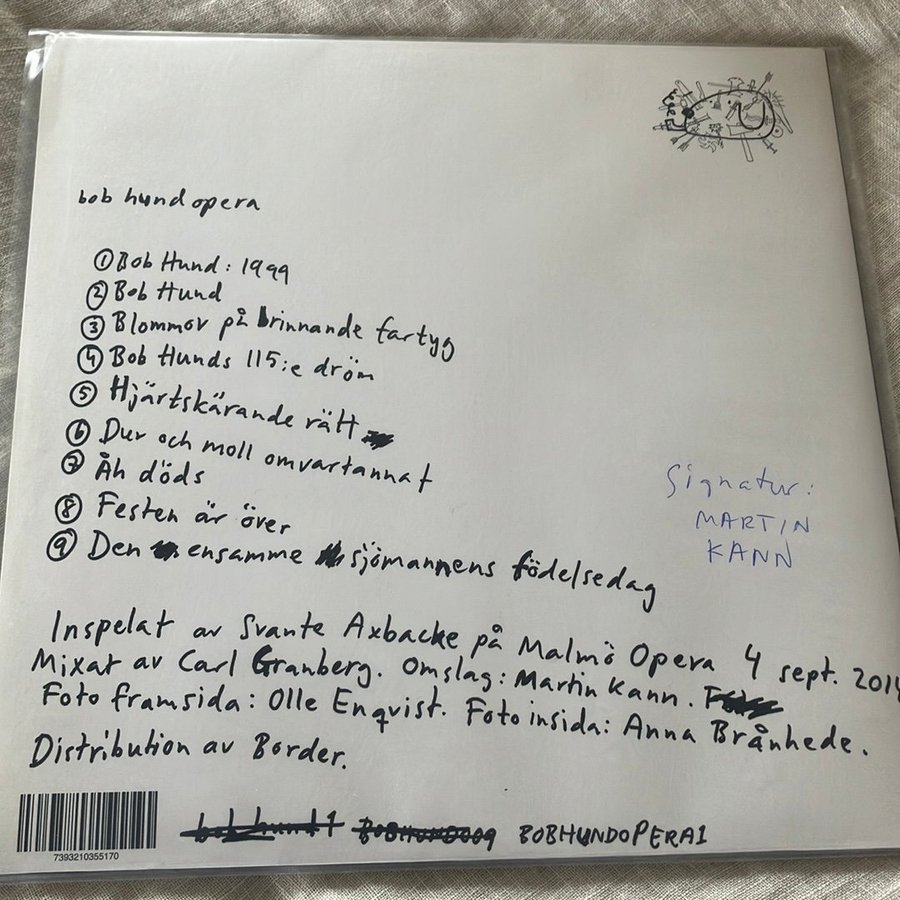 bob hund opera
① Bob Hund: 1999
② Bob Hund
③ Blommor på brinnande fartyg
④ Bob Hunds 115:e dröm
⑤ Hjärtskärande rätt
⑥ Dur och moll omvartannat
⑦ Åh döds
⑧ Festen är över
⑨ Den ensamme sjömannens födelsedag
Signatur:
MARTIN
KANN
Inspelat av Svante Axbacke på Malmö Opera 4 sept. 2014
Mixat av Carl Granberg. Omslag: Martin Kann.
Foto framsida: Olle Enqvist. Foto insida: Anna Brånhede.
Distribution av Border.
bob hund 1 BOBHUND009 BOBHUNDOPERA1
7393210355170